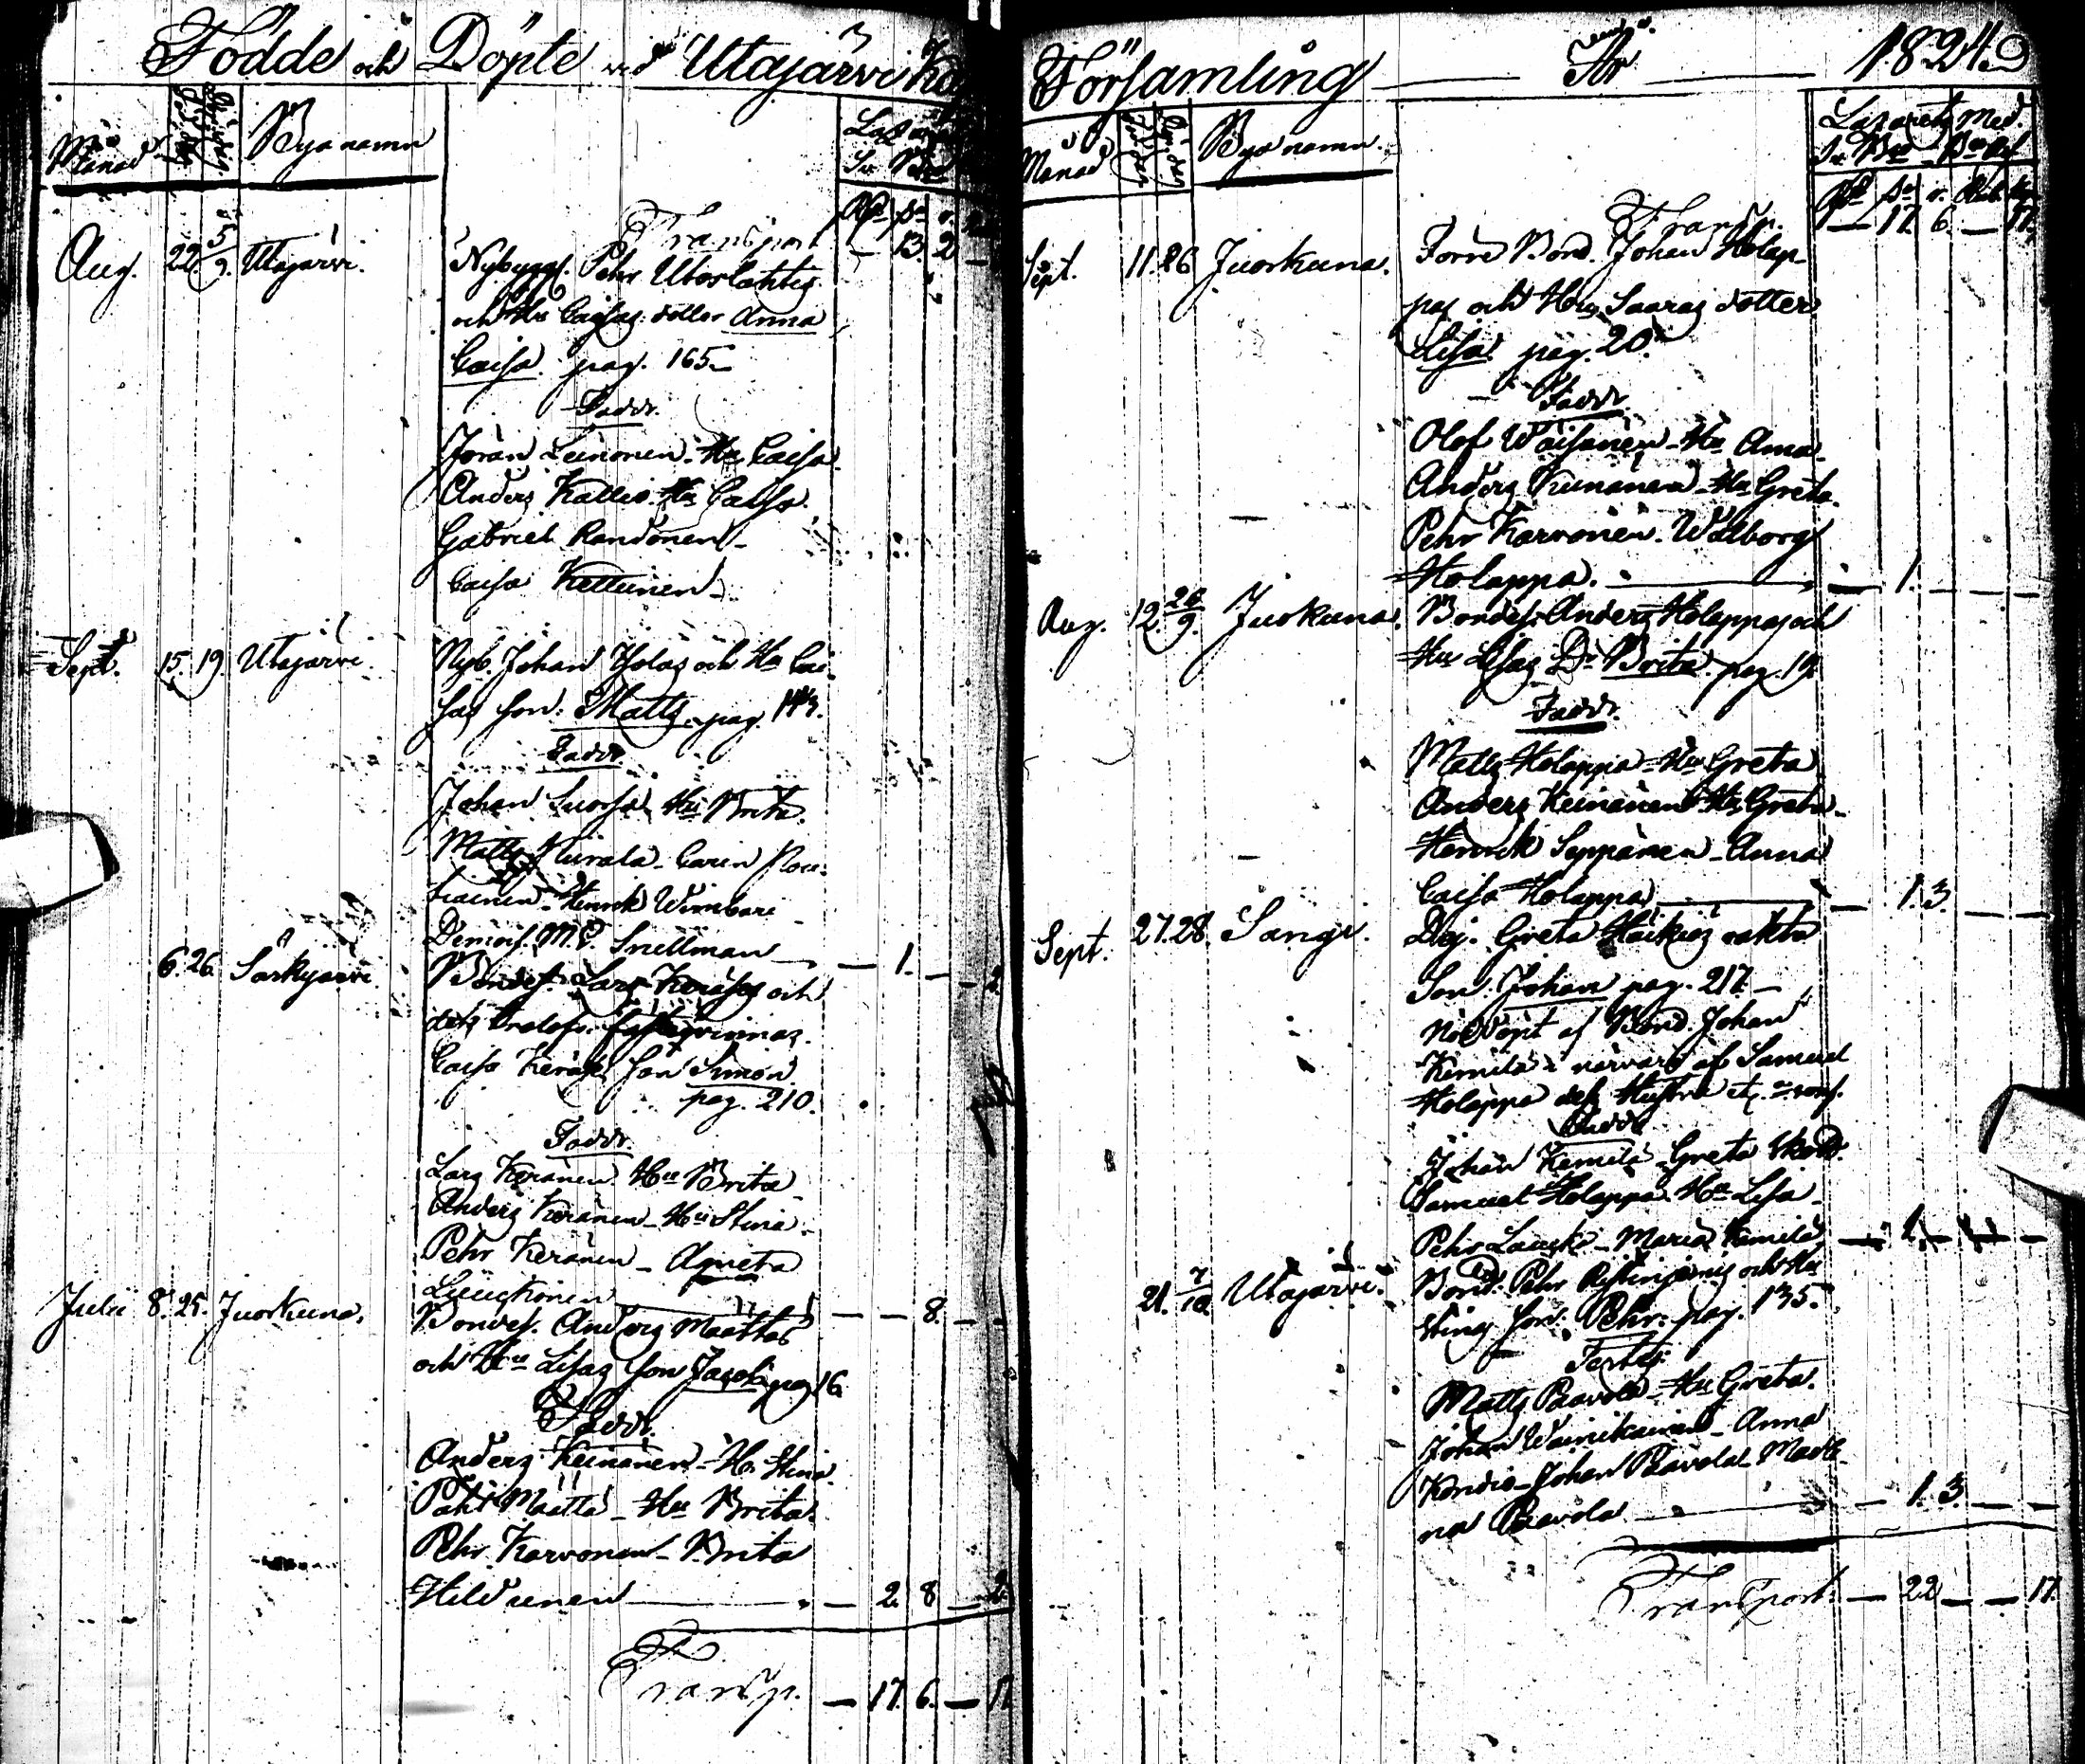 Födde och Döpte vid Utajärvi
Månad
Byanamn
Transport
13. 2
Aug. 22. 5/9. Utajärvi. Nybygg. Pehr Utoslahtis
och Hu Caisas dotter Anna
Caisa. pag. 165.
Faddr.
Jöran Leinonen. Hu Caisa.
Anders Kallio. Hu Caisa.
Gabriel Randonen
Caisa Kettunen
Sept. 15. 19. Utajärvi. Nyb. Johan Ylolas och Hu Cai-
sas son: Matts. pag. 144.
Faddr.
Johan Suorsa Hu Brita.
Matts Niirala. Carin Rou-
tiainen. Henrik Wimbari
Demois. M. C. Snellman — 1. — 2
6. 26. Särkijärvi. Bondes. Lars Keräses och
dess trolofv. fästeqvinnas
Caisa Keräs. Son Simon
pag. 210.
Faddr.
Lars Keränen Hu Brita
Anders Keränen Hu Stina
Pehr Keränen Agneta
Ljungkonen — 8.
Julii 8. 25. Juorkuna. Bondes. Anders Määttäs
och Hu Lisas Son Jacob pag 16
Faddr.
Anders Keinänen. Hu Stina.
Pähr Määttä Hu Brita.
Pehr Karvonen Brita
Hildunen — 2. 8 — 2.
Transp. — 17. 6. — 17
Församling År 1824
Månad
Byanamn.
Lazarets Med.
Transp.
— 17. 6. — 17.
Sept. 11. 26 Juorkuna. Förre Bond. Johan Holap-
pas och Hus Saaras dotter
Lisa pag. 20.
Faddr.
Olof Wäisänen. Hu Anna.
Anders Keinänen Hu Greta.
Pehr Karvonen. Walborg
Holappa. — 1.
Aug. 12. 26/9. Juorkuna. Bondes. Anders Holappas och
Hus Lisas Dr Brita. pag. 19.
Faddr.
Matts Holappa Hu Greta
Anders Keinänen Hu Greta
Henrik Seppänen Anna
Caisa Holappa — 1. 3.
Sept. 27. 28. Sangi. Pig. Greta Häikiös oäkta
Son. Johan pag. 217.
nöddöpt af Bond. Johan
Kemilä i närvaro af Samuel
Holappa dess Hustru
Faddr.
Johan Kemilä Greta
Samuel Holappa Hu Lisa
Pehr Lauski Maria Kemilä — 1.
21. 7/10 Utajärvi. Bond. Pehr Ristinjärvis och Hu
Stinas Son. Pehr. pag. 135.
Testes
Matts Paavola Hu Greta.
Johan Wainikainen Anna
Kondio Johan Paavola Madle-
na Paavola — 1. 3.
Transport. — 22 — 17.